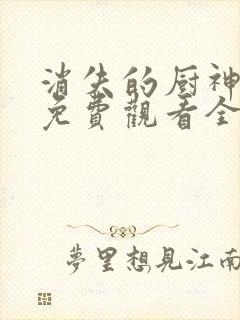 消失的厨神
免費觀看全
夢里想見江南